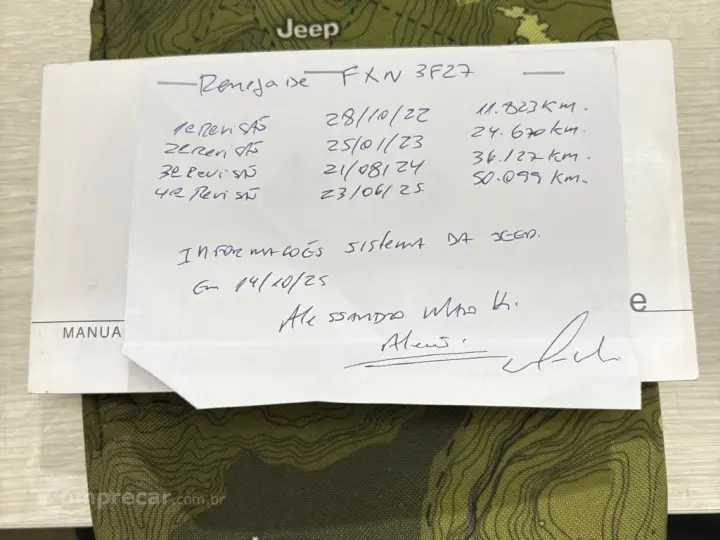 Jeep
Renegade FXN 3F27
1ª Revisão 28/10/22 11.823 Km.
2ª Revisão 25/01/23 24.670 Km.
3ª Revisão 21/08/24 36.127 Km.
4ª Revisão 23/06/25 50.099 Km.
INFORMAÇÕES SISTEMA DA JEEP.
Em 14/10/25
Alessandro
MANUA
e
comprecar.com.br